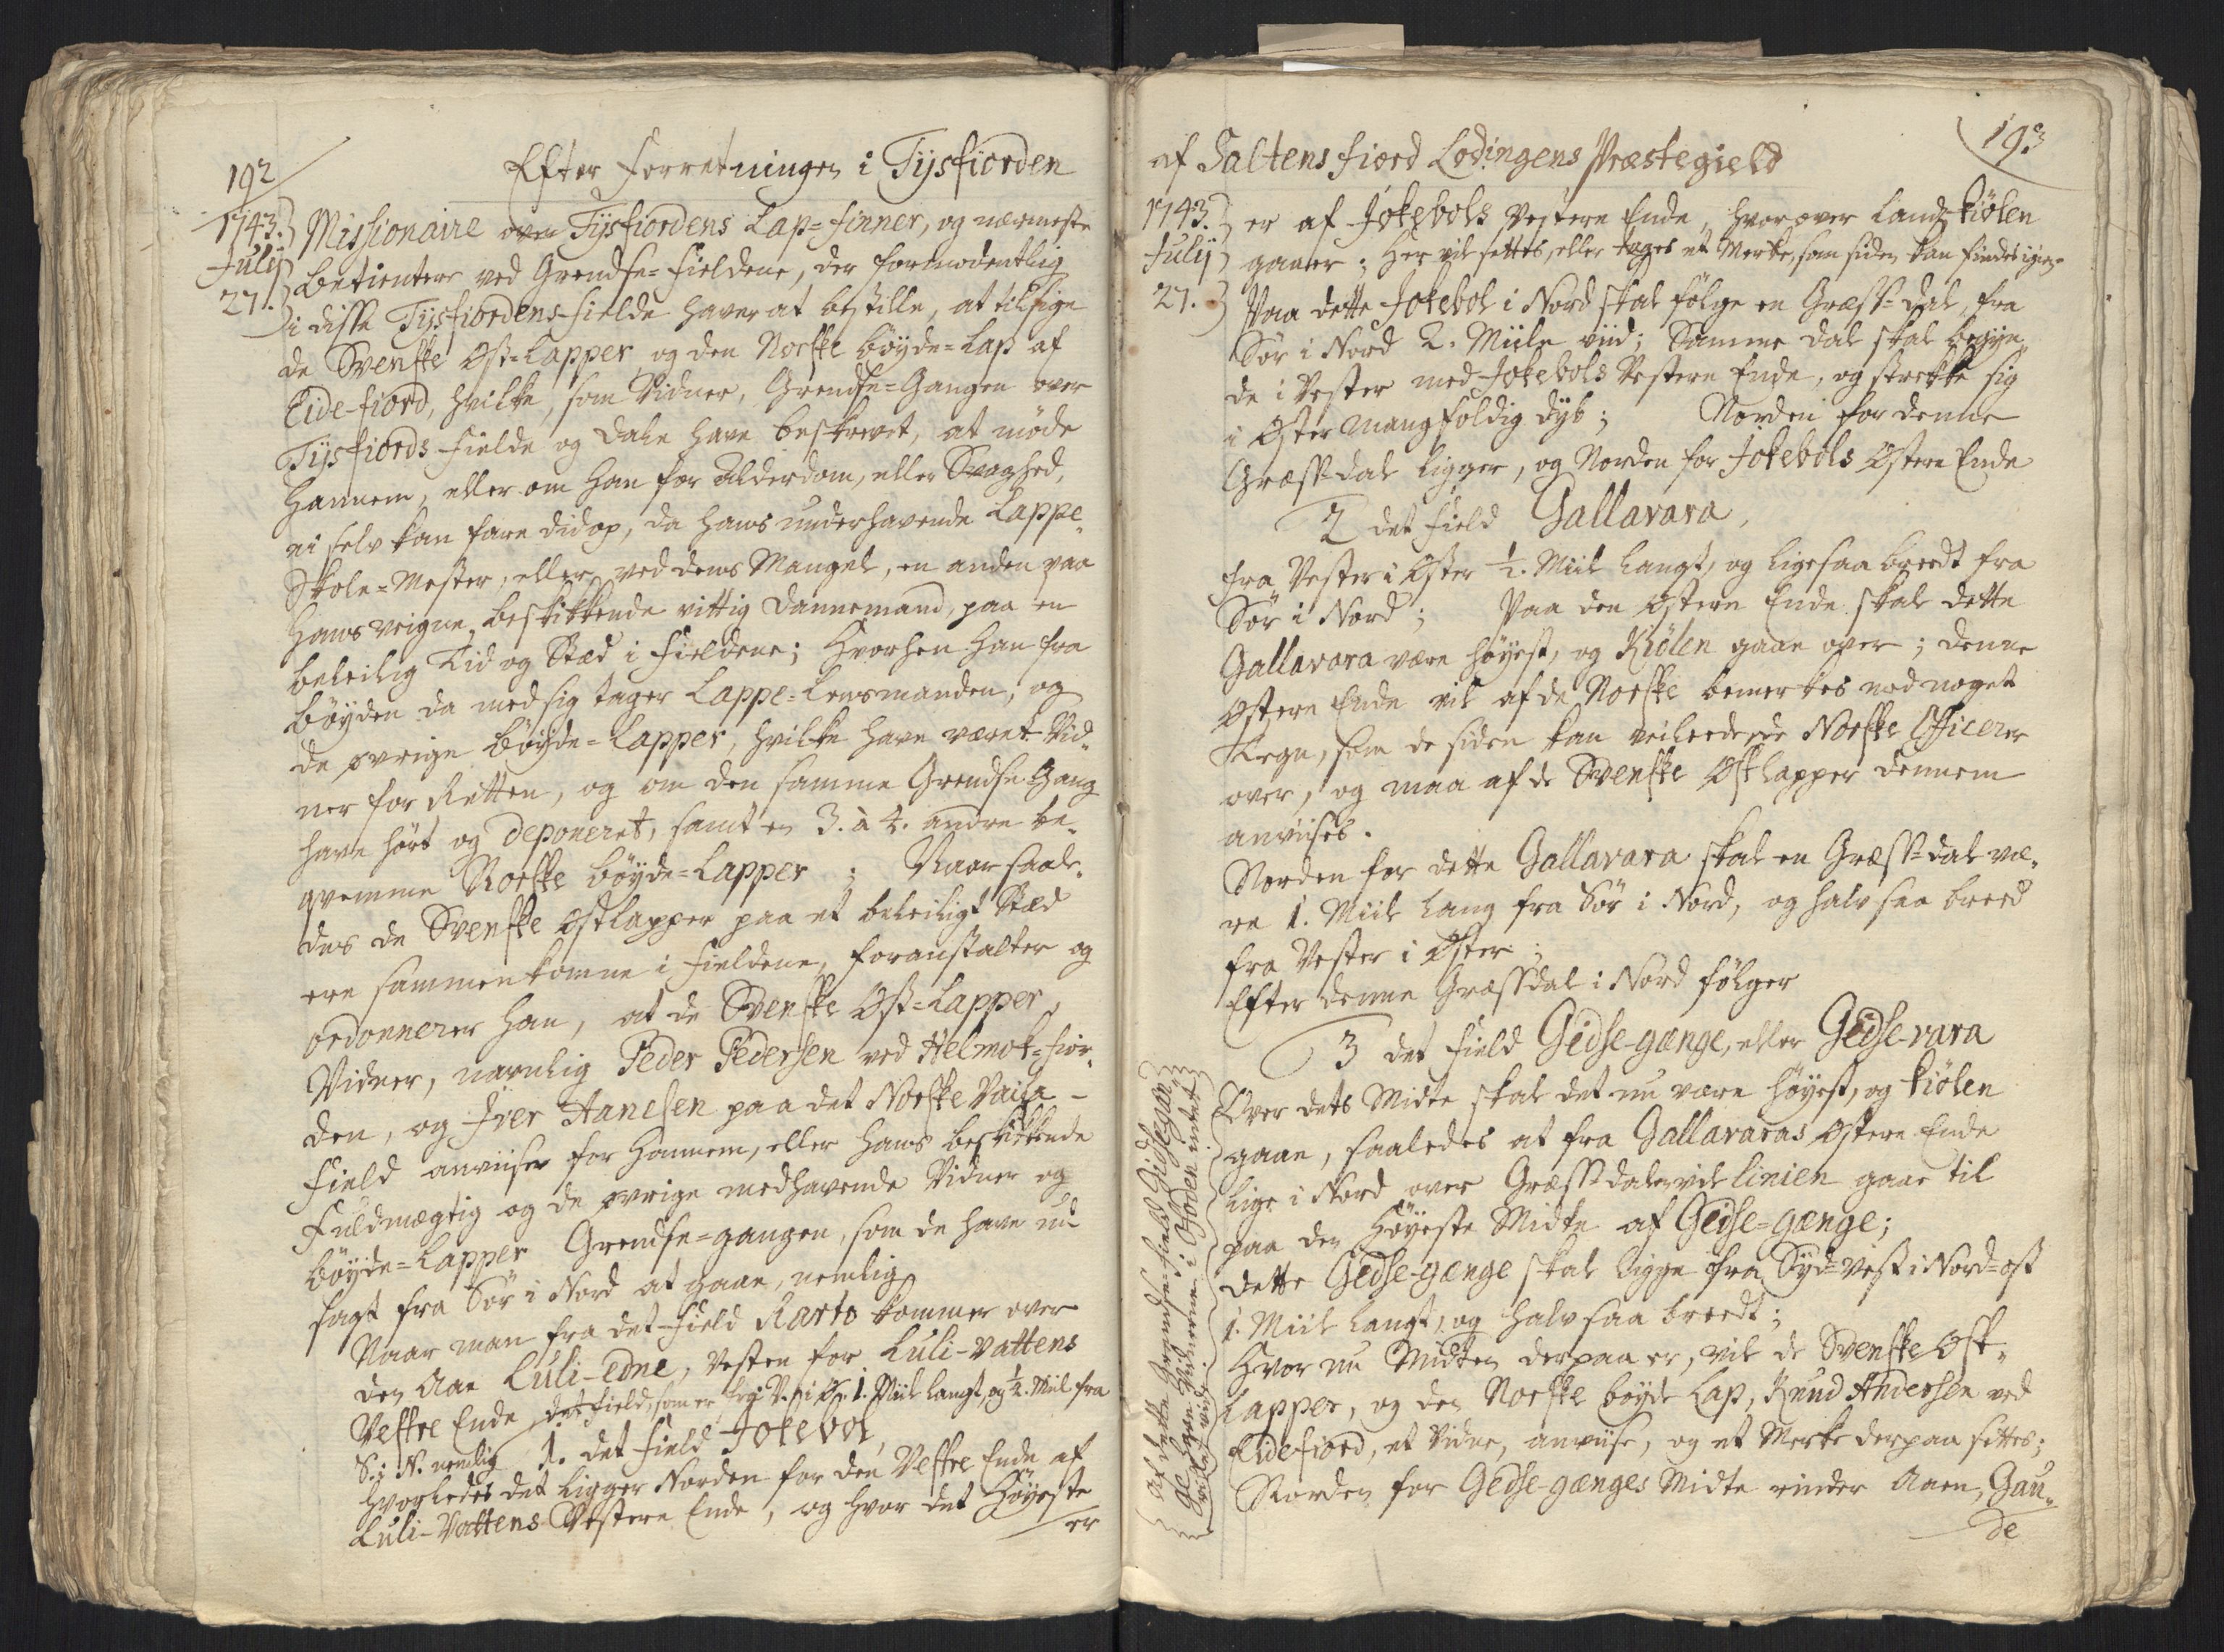 192
Efter Forretningen i Tÿsfiorden
1743.
Julÿ
27.
Missionaire over Tÿsfiordens Lap=finner, og nærmeste
betientere ved Grendse=fieldene, der formodentlig
i disse Tÿsfiordens fielde haver at bestille, at tilsige
de Svenske Øst=Lapper, og den Norske böyde=Lap af
Eide-fiord, hvilke, som Vidner, Grendse=Gangen over
Tÿsfiords fielde og dale have beskrevet, at møde
hannem, eller om han for Alderdom, eller Svaghed,
ei selv kan fare didop, da hans underhavende Lappe-
Skole=Mester, eller, ved dens Mangel, en anden paa
hans veigne beskikkende vittig Dannemand, paa en
beleilig Tid og Stæd i fieldene; Hvorhen han fra
böyden da med sig tager Lappe=Lensmanden, og
de øvrige böyde=Lapper, hvilke have været Vid-
ner for Retten, og om den samme Grendse Gang
have hört og deponeret, samt en 3. à 4. andre be-
qvemme Norske böyde=Lapper; Naar saale-
des de Svenske Østlapper paa et beleiligt Stæd
ere sammenkomne i fieldene, foranstalter og
ordonnerer han, at de Svenske Øst=Lapper,
Vidner, navnlig Peder Pedersen ved Helmok=fior-
den, og Iver Hansen paa det Norske Vaisa-
Field anviiser for hannem, eller hans beskikkende
Fuldmægtig og de øvrige medhavende Vidner og
böyde=Lapper Grendse=gangen, som de have nu
sagt fra Sör i Nord at gaae, nemlig
Naar man fra det Field Rarto kommer over
den Aae Luli-edne, Vesten for Luli-Vattens
Vestre Ende, det field, som er fra V. i Ø. 1. Miil langt, og ½. Miil fra
S. i N. nemlig 1. det field Jokebok,
hvorledes det ligger Norden for den Vestre Ende af
Luli-Vattens Vestere Ende, og hvor det Høyeste
er
193
af Saltens fiord Lodingens Præstegield
1743.
Julÿ
27.
er af Jokeboks Vestere Ende, hvorover Landz-kiölen
gaaer; Her vil settes, eller tages et Merke, som siden kan findes igien.
Paa dette Jokebok i Nord skal følge en Græss=dal, fra
Sör i Nord 2. Miile viid; Samme dal skal begyn-
de i Vester med Jokeboks Vestere Ende, og strekke sig
i Øster mangfoldig dÿb; Norden for denne
Græss-dal ligger, og Norden for Jokeboks Østere Ende
2 det Field Gallavara,
fra Vester i Øster ½. Miil langt, og ligesaa breedt fra
Sör i Nord; Paa den Østere Ende skal dette
Gallavara være høyest, og Kiölen gaae over; denne
Østere Ende vil af de Norske bemerkes ved noget
Tegn, som de siden kan veileede de Norske Officerer
over, og maa af de Svenske Østlapper dennem
anviises.
Norden for dette Gallavara skal en Græss=dal væ-
re 1. Miil lang fra Sör i Nord, og halv saa breed
fra Vester i Øster;
Efter denne Græssdal i Nord følger
3 det Field Gidse-gænge, eller Gedse-vara
Over dets Midte skal det nu være høyest, og kiölen
gaae, saaledes at fra Gallavaras Østere Ende
lige i Nord over Græss-dalen vil linien gaae til
paa den Høyeste Midte af Gedse=gænge;
dette Gedse-gænge skal ligge fra Syd=vest i Nord=ost
1. Miil langt, og halv saa breedt;
Hvor nu Midten derpaa er, vil de Svenske Øst-
Lapper, og den Norske böyde Lap, Knud Andersen ved
Eidefiord, et Vidne, anviise, og et Merke derpaa settes;
Norden for Gedse-gænges Midte rinder Aaen, Gau-
de
Af dette Grendse=field Gidsegæn
ge have Vidnerne i Ofoden intet